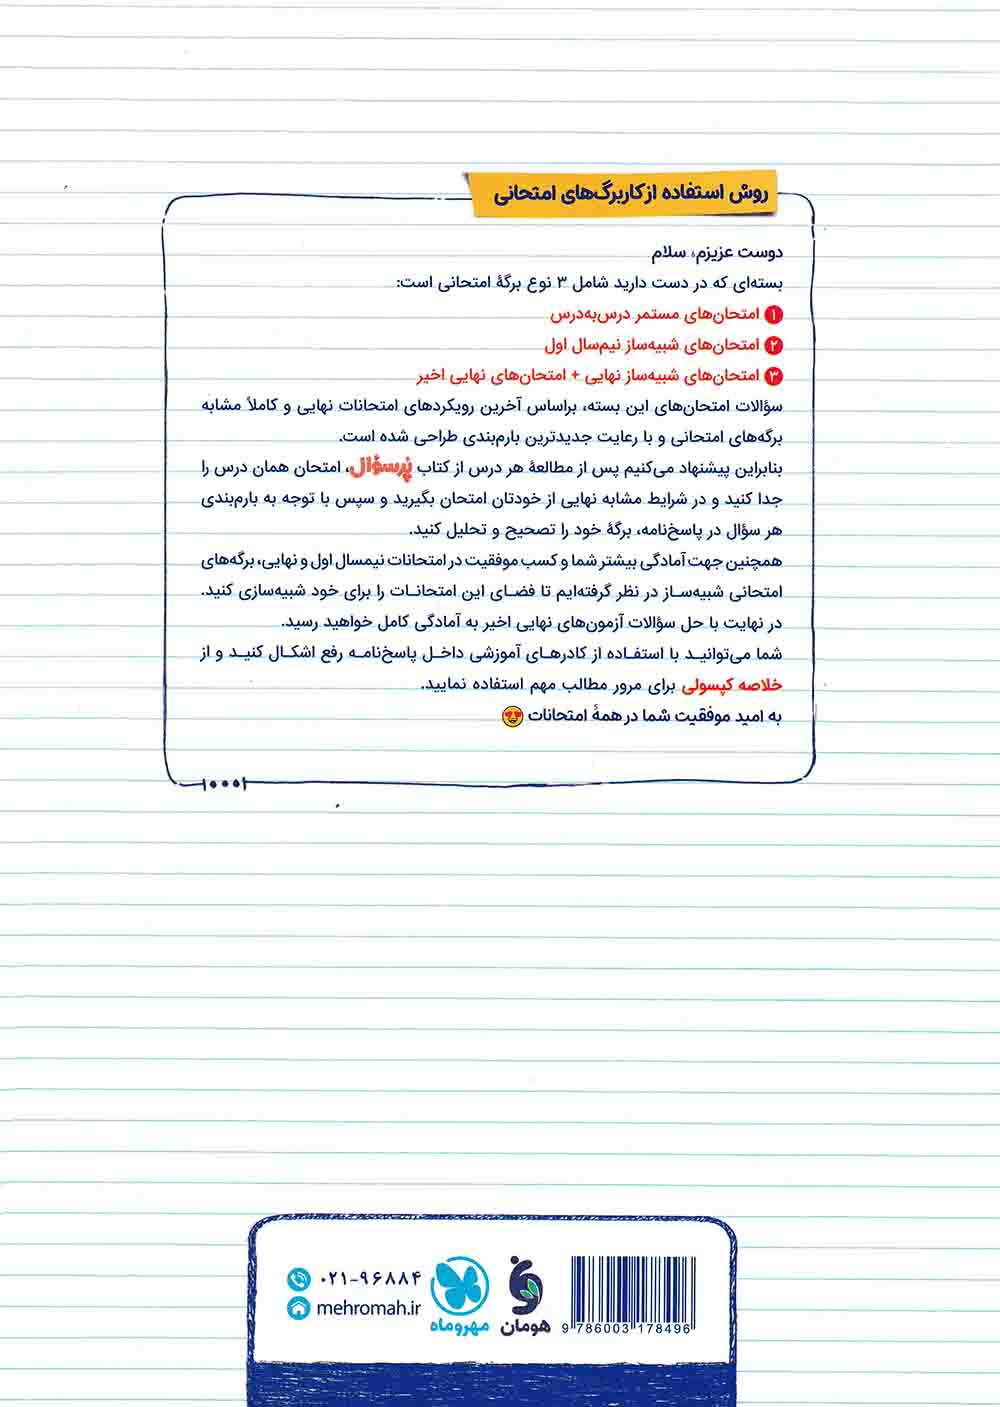 روش استفاده از کاربرگ‌های امتحانی
دوست عزیزم، سلام
بسته‌ای که در دست دارید شامل ۳ نوع برگهٔ امتحانی است:
۱ امتحان‌های مستمر درس‌به‌درس
۲ امتحان‌های شبیه‌ساز نیم‌سال اول
۳ امتحان‌های شبیه‌ساز نهایی + امتحان‌های نهایی اخیر
سؤالات امتحان‌های این بسته، براساس آخرین رویکردهای امتحانات نهایی و کاملاً مشابه
برگه‌های امتحانی و با رعایت جدیدترین بارم‌بندی طراحی شده است.
بنابراین پیشنهاد می‌کنیم پس از مطالعهٔ هر درس از کتاب پُرسؤال، امتحان همان درس را
جدا کنید و در شرایط مشابه نهایی از خودتان امتحان بگیرید و سپس با توجه به بارم‌بندی
هر سؤال در پاسخ‌نامه، برگهٔ خود را تصحیح و تحلیل کنید.
همچنین جهت آمادگی بیشتر شما و کسب موفقیت در امتحانات نیمسال اول و نهایی، برگه‌های
امتحانی شبیه‌ساز در نظر گرفته‌ایم تا فضای این امتحانات را برای خود شبیه‌سازی کنید.
در نهایت با حل سؤالات آزمون‌های نهایی اخیر به آمادگی کامل خواهید رسید.
شما می‌توانید با استفاده از کادرهای آموزشی داخل پاسخ‌نامه رفع اشکال کنید و از
خلاصه کپسولی برای مرور مطالب مهم استفاده نمایید.
به امید موفقیت شما در همهٔ امتحانات 😍
۰۲۱-۹۶۸۸۴
mehromah.ir
مهروماه
هومان
9 786003 178496